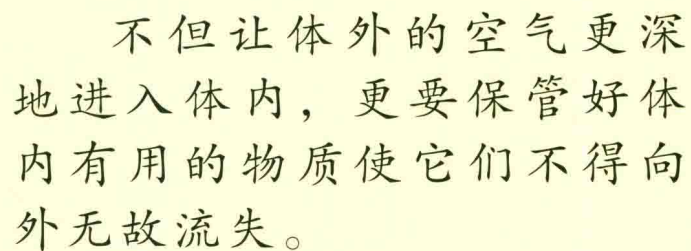 不但让体外的空气更深
地进入体内，更要保管好体
内有用的物质使它们不得向
外无故流失。